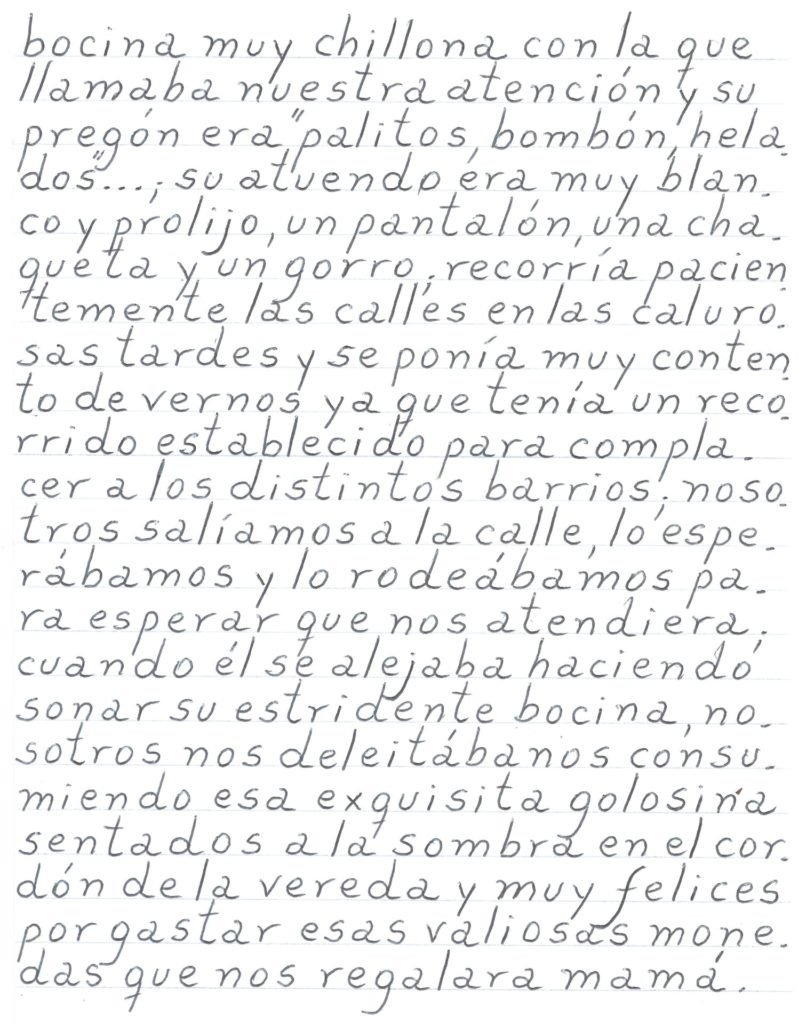 bocina muy chillona con la que
llamaba nuestra atención y su
pregón era "palitos, bombón, hela-
dos"...; su atuendo era muy blan-
co y prolijo, un pantalón, una cha-
queta y un gorro; recorría pacien
temente las calles en las caluro-
sas tardes y se ponía muy conten
to de vernos ya que tenía un reco-
rrido establecido para compla-
cer a los distintos barrios; noso-
tros salíamos a la calle, lo espe-
rábamos y lo rodeábamos pa-
ra esperar que nos atendiera;
cuando él se alejaba haciendo
sonar su estridente bocina, no-
sotros nos deleitábanos consu-
miendo esa exquisita golosina
sentados a la sombra en el cor-
dón de la vereda y muy felices
por gastar esas valiosas mone-
das que nos regalara mamá.